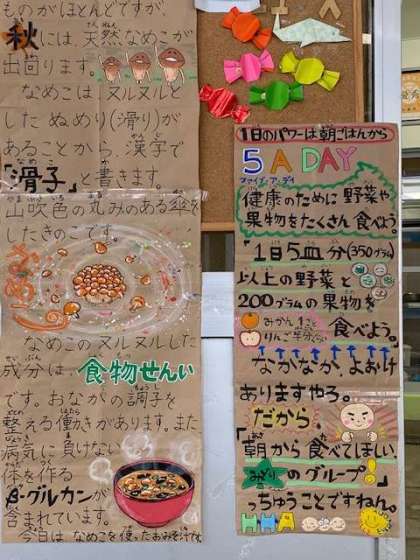 ものがほとんどですが、
秋には、天然なめこが
出荷ります。
なめこは、ヌルヌルと
したぬめり(滑り)が
あることから漢字で
「滑子」と書きます。
山吹色の丸みのある傘を
したきのこです。
なめこのヌルヌルした
成分は、食物せんい
です。おなかの調子を
整える働きがあります。また
病気に負けない
体を作る
β-グルカンが
含まれています。
今日はなめこを使ったおみそ汁です
1日のパワーは朝ごはんから
5 A DAY
ファイブ・ア・デイ
健康のために野菜や
果物をたくさん食べよう。
「1日5皿分(350グラム)
以上の野菜と
200グラムの果物を
みかん1こと
りんご半分くらい
食べよう。
なかなか、よおけ
ありますやろ。
だから、
「朝から食べてほしい、
みどりのグループ!」
ちゅうことですねん。